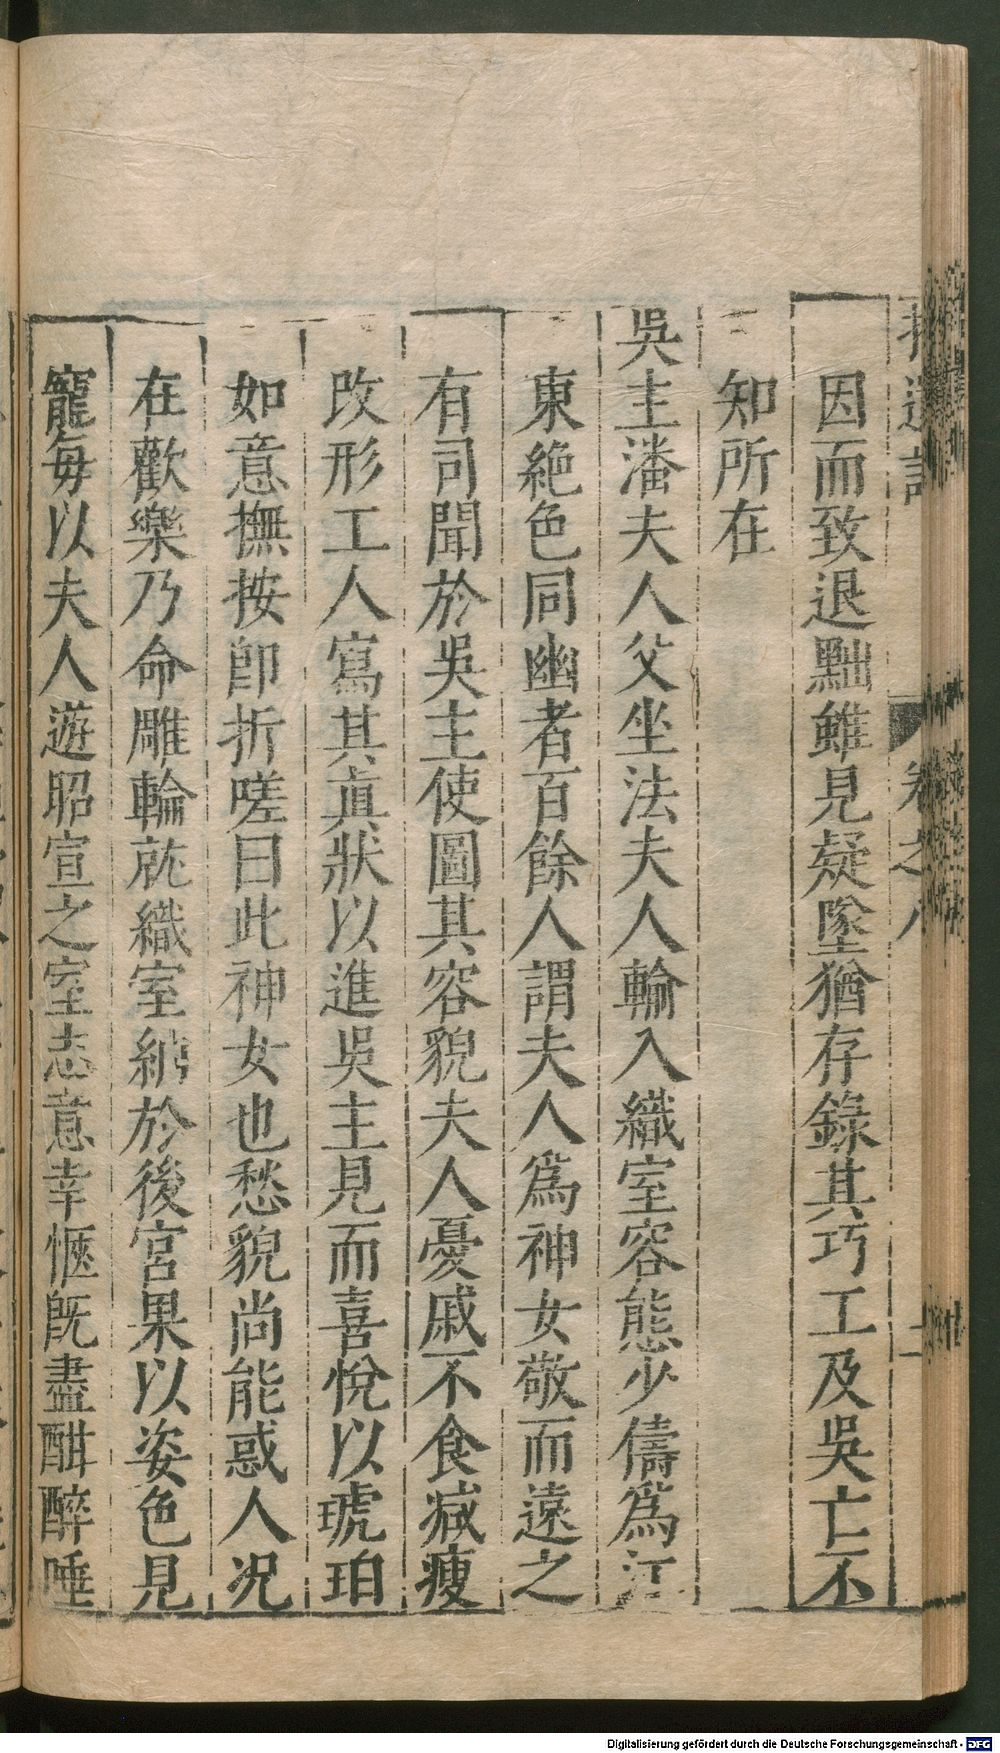 拾遺記 卷之八 二
因而致退黜雖見疑墜猶存錄其巧工及吳亡不
知所在
吳主潘夫人父坐法夫人輸入織室容態少儔爲江
東絕色同幽者百餘人謂夫人爲神女敬而遠之
有司聞於吳主使圖其容貌夫人憂戚不食減瘦
改形工人寫其眞狀以進吳主見而喜悅以琥珀
如意撫按卽折嗟曰此神女也愁貌尚能惑人况
在歡樂乃命雕輪就織室納於後宮果以姿色見
寵每以夫人遊昭宣之室志意幸愜旣盡酣醉唾
Digitalisierung gefördert durch die Deutsche Forschungsgemeinschaft - DFG